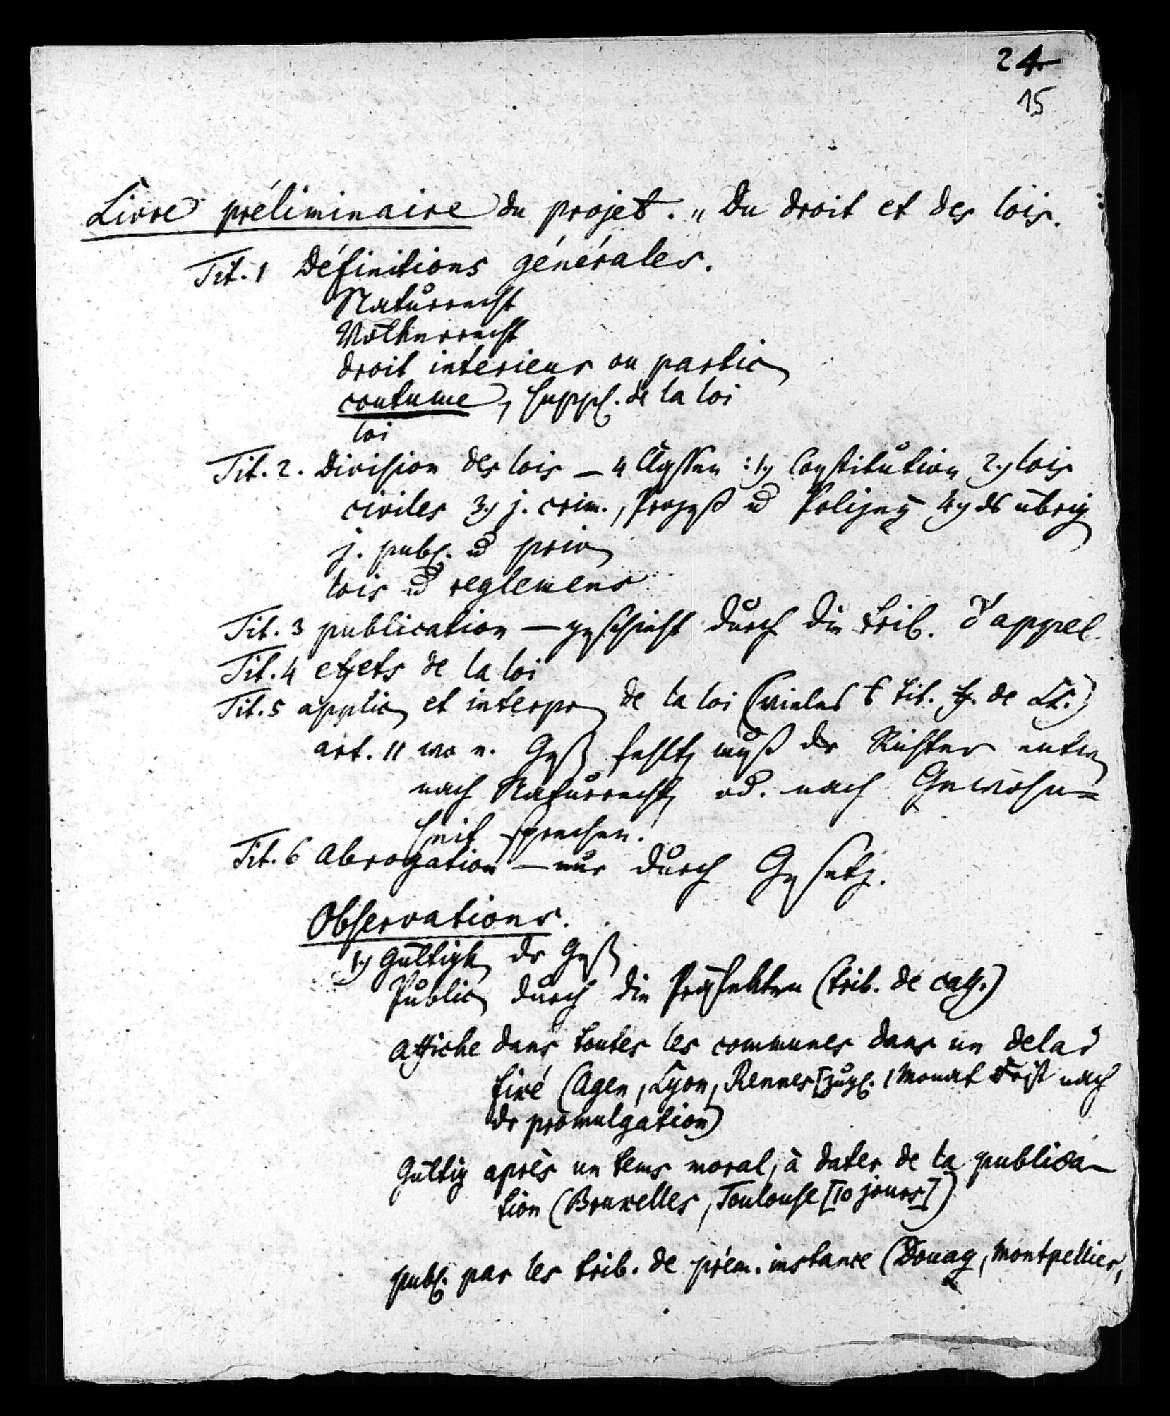 24
15
Livre préliminaire du projet. „ Du droit et des lois.
Tit. 1 Définitions générales.
Naturrecht
Völkerrecht
droit interieur ou partic
coutume, suppl. de la loi
loi
Tit. 2. Division des lois – 4 Classen: 1) Constitution 2) lois
civiles 3) j. crim., Prozeß u Polizey 4) ds übrig
j. publ. u priv
lois u reglemens
Tit. 3 publication – geschieht durch die trib. d'appel.
Tit. 4 effets de la loi
Tit. 5 applic et interpr de la loi (vieles tit. ff. de LL.)
art. 11 wo e. Gesß fehlt, muß der Richter entw
nach Naturrecht, od. nach Gewohn=
heit sprechen.
Tit. 6 abrogation – nur durch Gesetz.
Observations.
1) Gültigk der Gesß
Public durch die Präfekten (trib. de cass.)
affiche dans toutes les communes dans un delai
fixé (Agen, Lyon, Rennes [zugl. 1 Monat Frist nach
der promulgation)
Gültig après un tems moral, à dater de la publica-
tion (Bruxelles, Toulouse [10 jours])
publ. par les trib. de prem. instance (Douay, Montpellier,